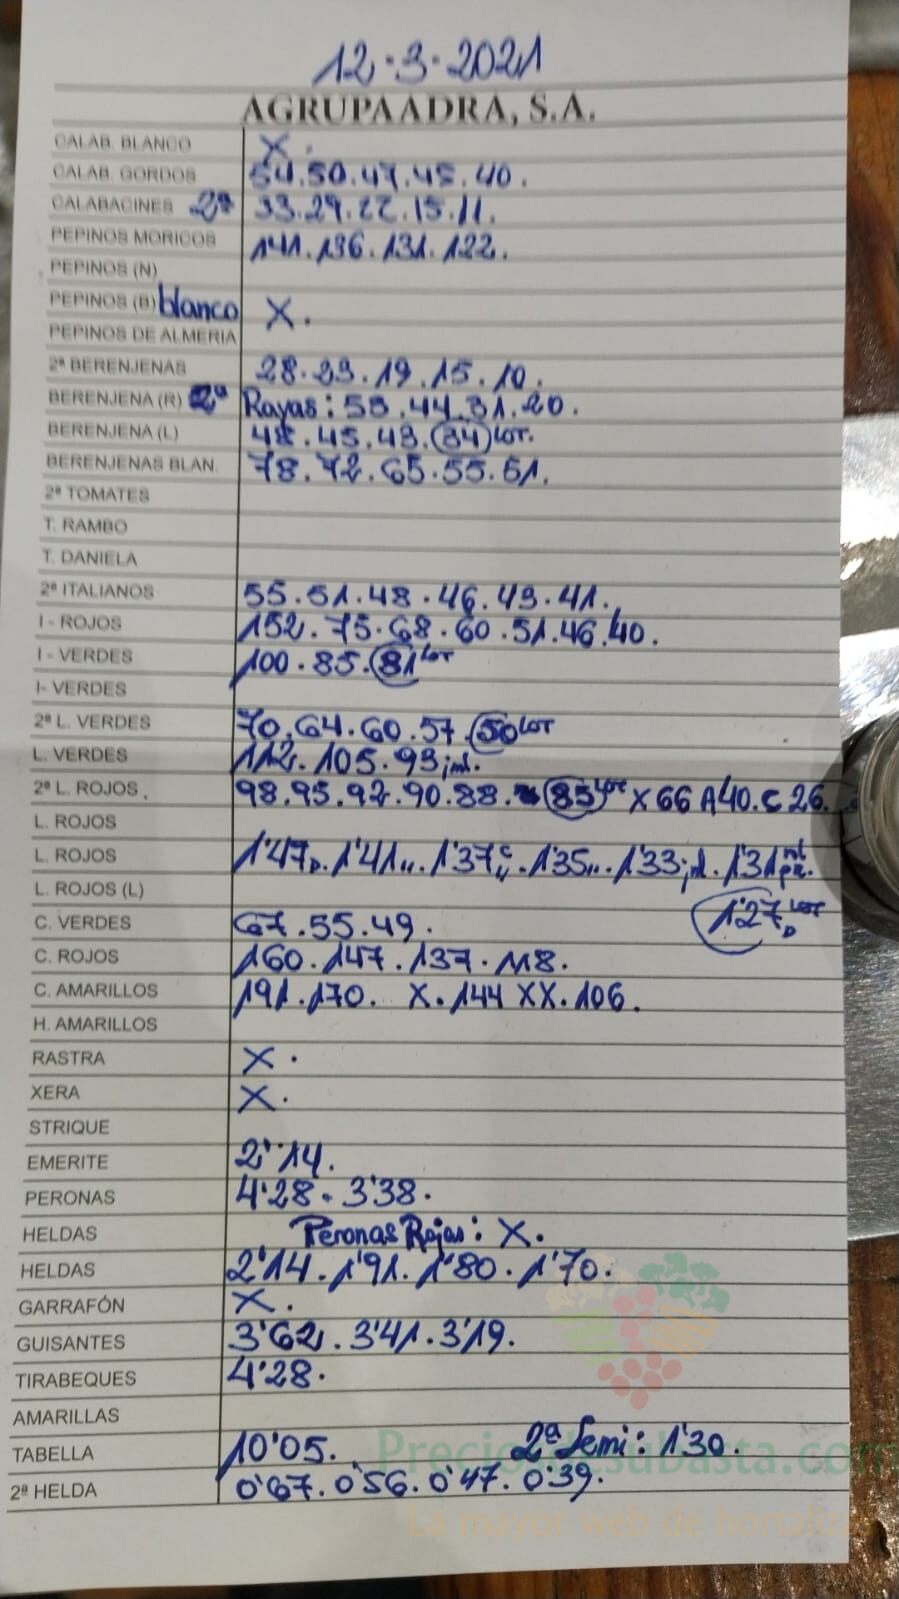 12-3-2021
AGRUPAADRA, S.A.
CALAB. BLANCO X.
CALAB. GORDOS 54.50.47.45.40.
CALABACINES 2ª 33.29.22.15.11.
PEPINOS MORICOS 141.136.131.122.
PEPINOS (N)
PEPINOS (B) blanco X.
PEPINOS DE ALMERIA
2ª BERENJENAS 28.23.19.15.10.
BERENJENA (R) 2ª Rayas: 55.44.31.20.
BERENJENA (L) 48.45.43.(34) LOT.
BERENJENAS BLAN. 78.72.65.55.51.
2ª TOMATES
T. RAMBO
T. DANIELA
2ª ITALIANOS 55.51.48.46.43.41.
I - ROJOS 152.75.68.60.51.46.40.
I - VERDES 100.85.(81) LOT
I- VERDES
2ª L. VERDES 70.64.60.57.(50) LOT
L. VERDES 112.105.93 inl.
2ª L. ROJOS. 98.95.92.90.88.(85) LOT X 66 A40.C 26.
L. ROJOS
L. ROJOS 1'47D.1'41...1'37C.1'35...1'33.1'31
L. ROJOS (L) (1'27D LOT)
C. VERDES 67.55.49.
C. ROJOS 160.147.137.118.
C. AMARILLOS 191.170. X.144 XX.106.
H. AMARILLOS
RASTRA X.
XERA X.
STRIQUE
EMERITE 2'14.
PERONAS 4'28.3'38.
HELDAS Peronas Rojas: X.
HELDAS 2'14.1'91.1'80.1'70.
GARRAFÓN X.
GUISANTES 3'62.3'41.3'19.
TIRABEQUES 4'28.
AMARILLAS
TABELLA 10'05. 2ª Semi: 1'30.
Preciosdesubasta.com
2ª HELDA 0'67.0'56.0'47.0'39.
La mayor web de hortaliz